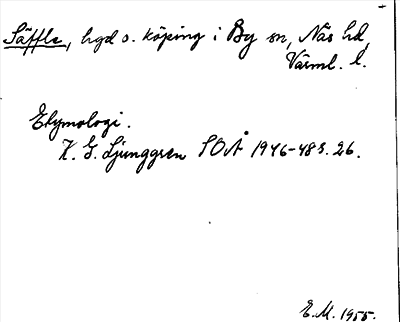 Säffle, bgd o. köping i By sn, Näs hd,
Värml. l.
Etymologi.
K. G. Ljunggren SOÅ 1946-48 s. 26.
E.M. 1955.